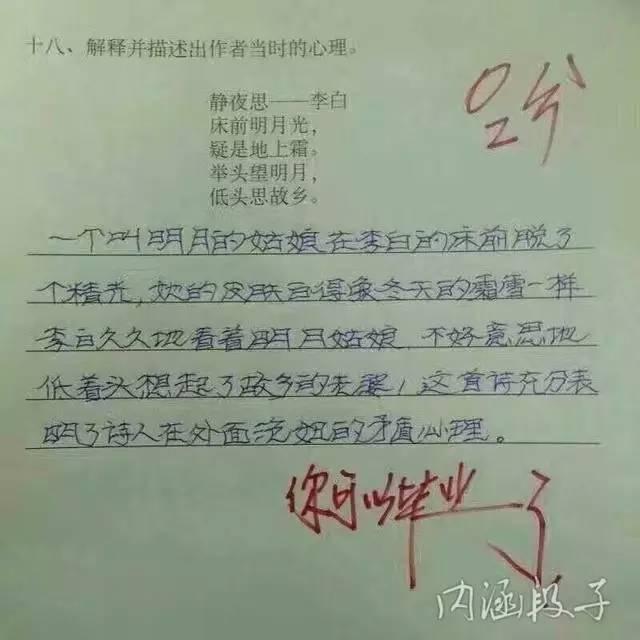 十八、解释并描述出作者当时的心理。
静夜思——李白
床前明月光，
疑是地上霜。
举头望明月，
低头思故乡。
0分
一个叫明月的姑娘在李白的床前脱了
个精光，她的皮肤白得象冬天的霜雪一样
李白久久地看着明月姑娘，不好意思地
低着头想起了故乡的老婆，这首诗充分表
明了诗人在外面浣妞的矛盾心理。
你可以毕业了
内涵段子